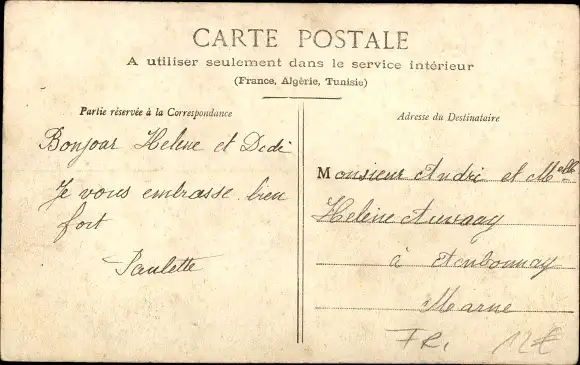 CARTE POSTALE
A utiliser seulement dans le service intérieur
(France, Algérie, Tunisie)
Partie réservée à la Correspondance
Bonjour Helene et Dedi
Je vous embrasse bien
fort
Paulette
Adresse du Destinataire
Monsieur André et Melle
Helène
à Ambonnay
Marne
FR, 12€